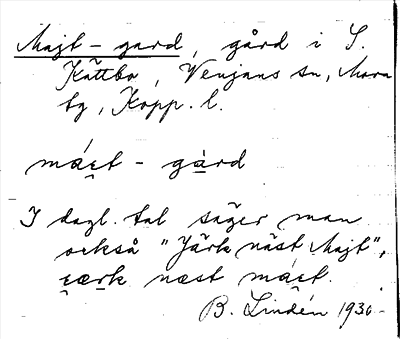 Majt-gard, gård i S.
Kättbo, Venjans sn, Mora
tg, Kopp. l.
mái̯t - gà̱rd
I dagl. tal säger man
också "Järk näst Majt",
næst mái̯t.
B. Lindén 1930.